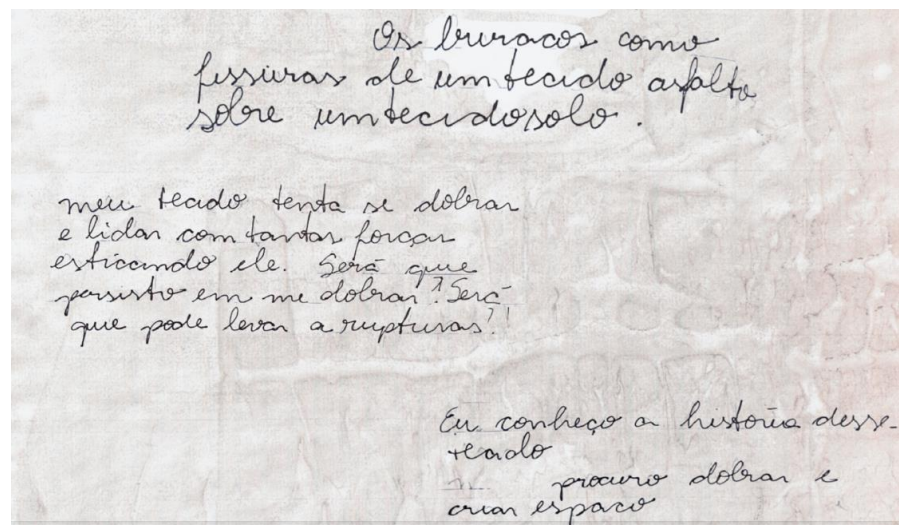 Os buracos como
fissuras de um tecido asfalto
sobre um tecido solo.
meu tecido tenta se dobrar
e lidar com tantas forças
esticando ele. Será que
persisto em me dobrar? Será
que pode levar a rupturas?!
Eu conheço a história desse
tecido
procuro dobrar e
criar espaço